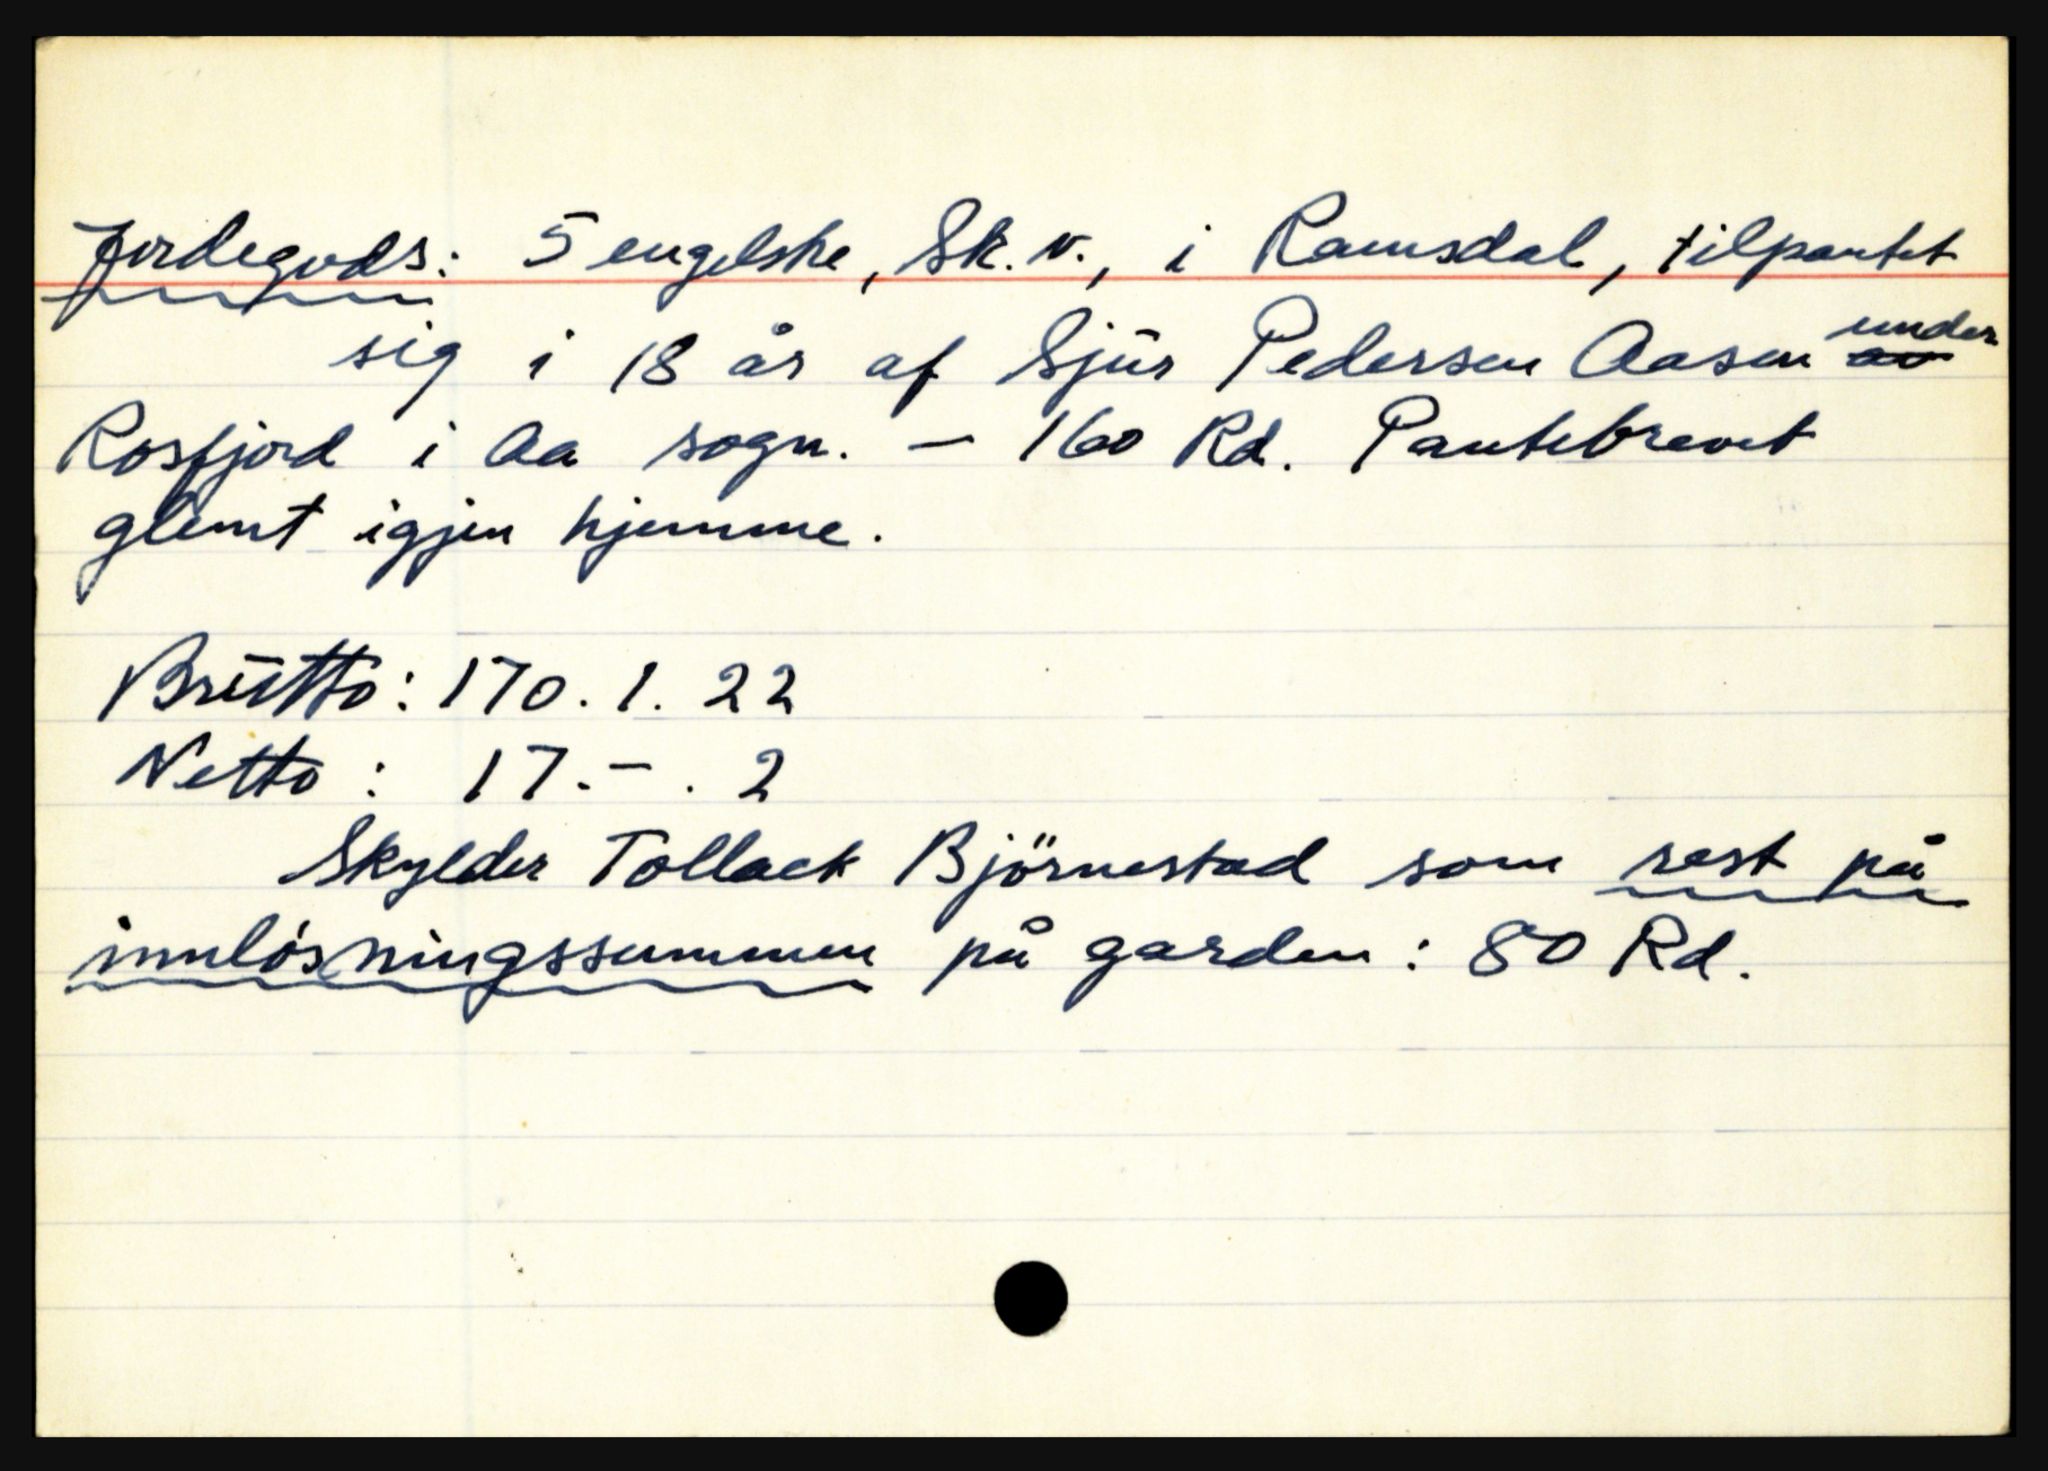 Jordegods: 5 engelske, Sk. v., i Ramsdal, tilpantet
sig i 18 år af Sjur Pedersen Aasen under
Rosfjord i Aa sogn. – 160 Rd. Pantebrevet
glemt igjen hjemme.
Brutto: 170. 1. 22
Netto: 17. – . 2
Skylder Tollack Björnestad som rest på
innlösningssummen på garden: 80 Rd.